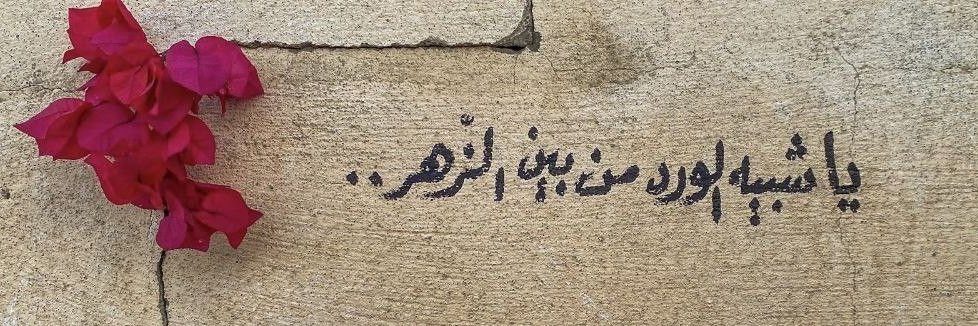 يا شبيه الورد من بين الزّهر ..